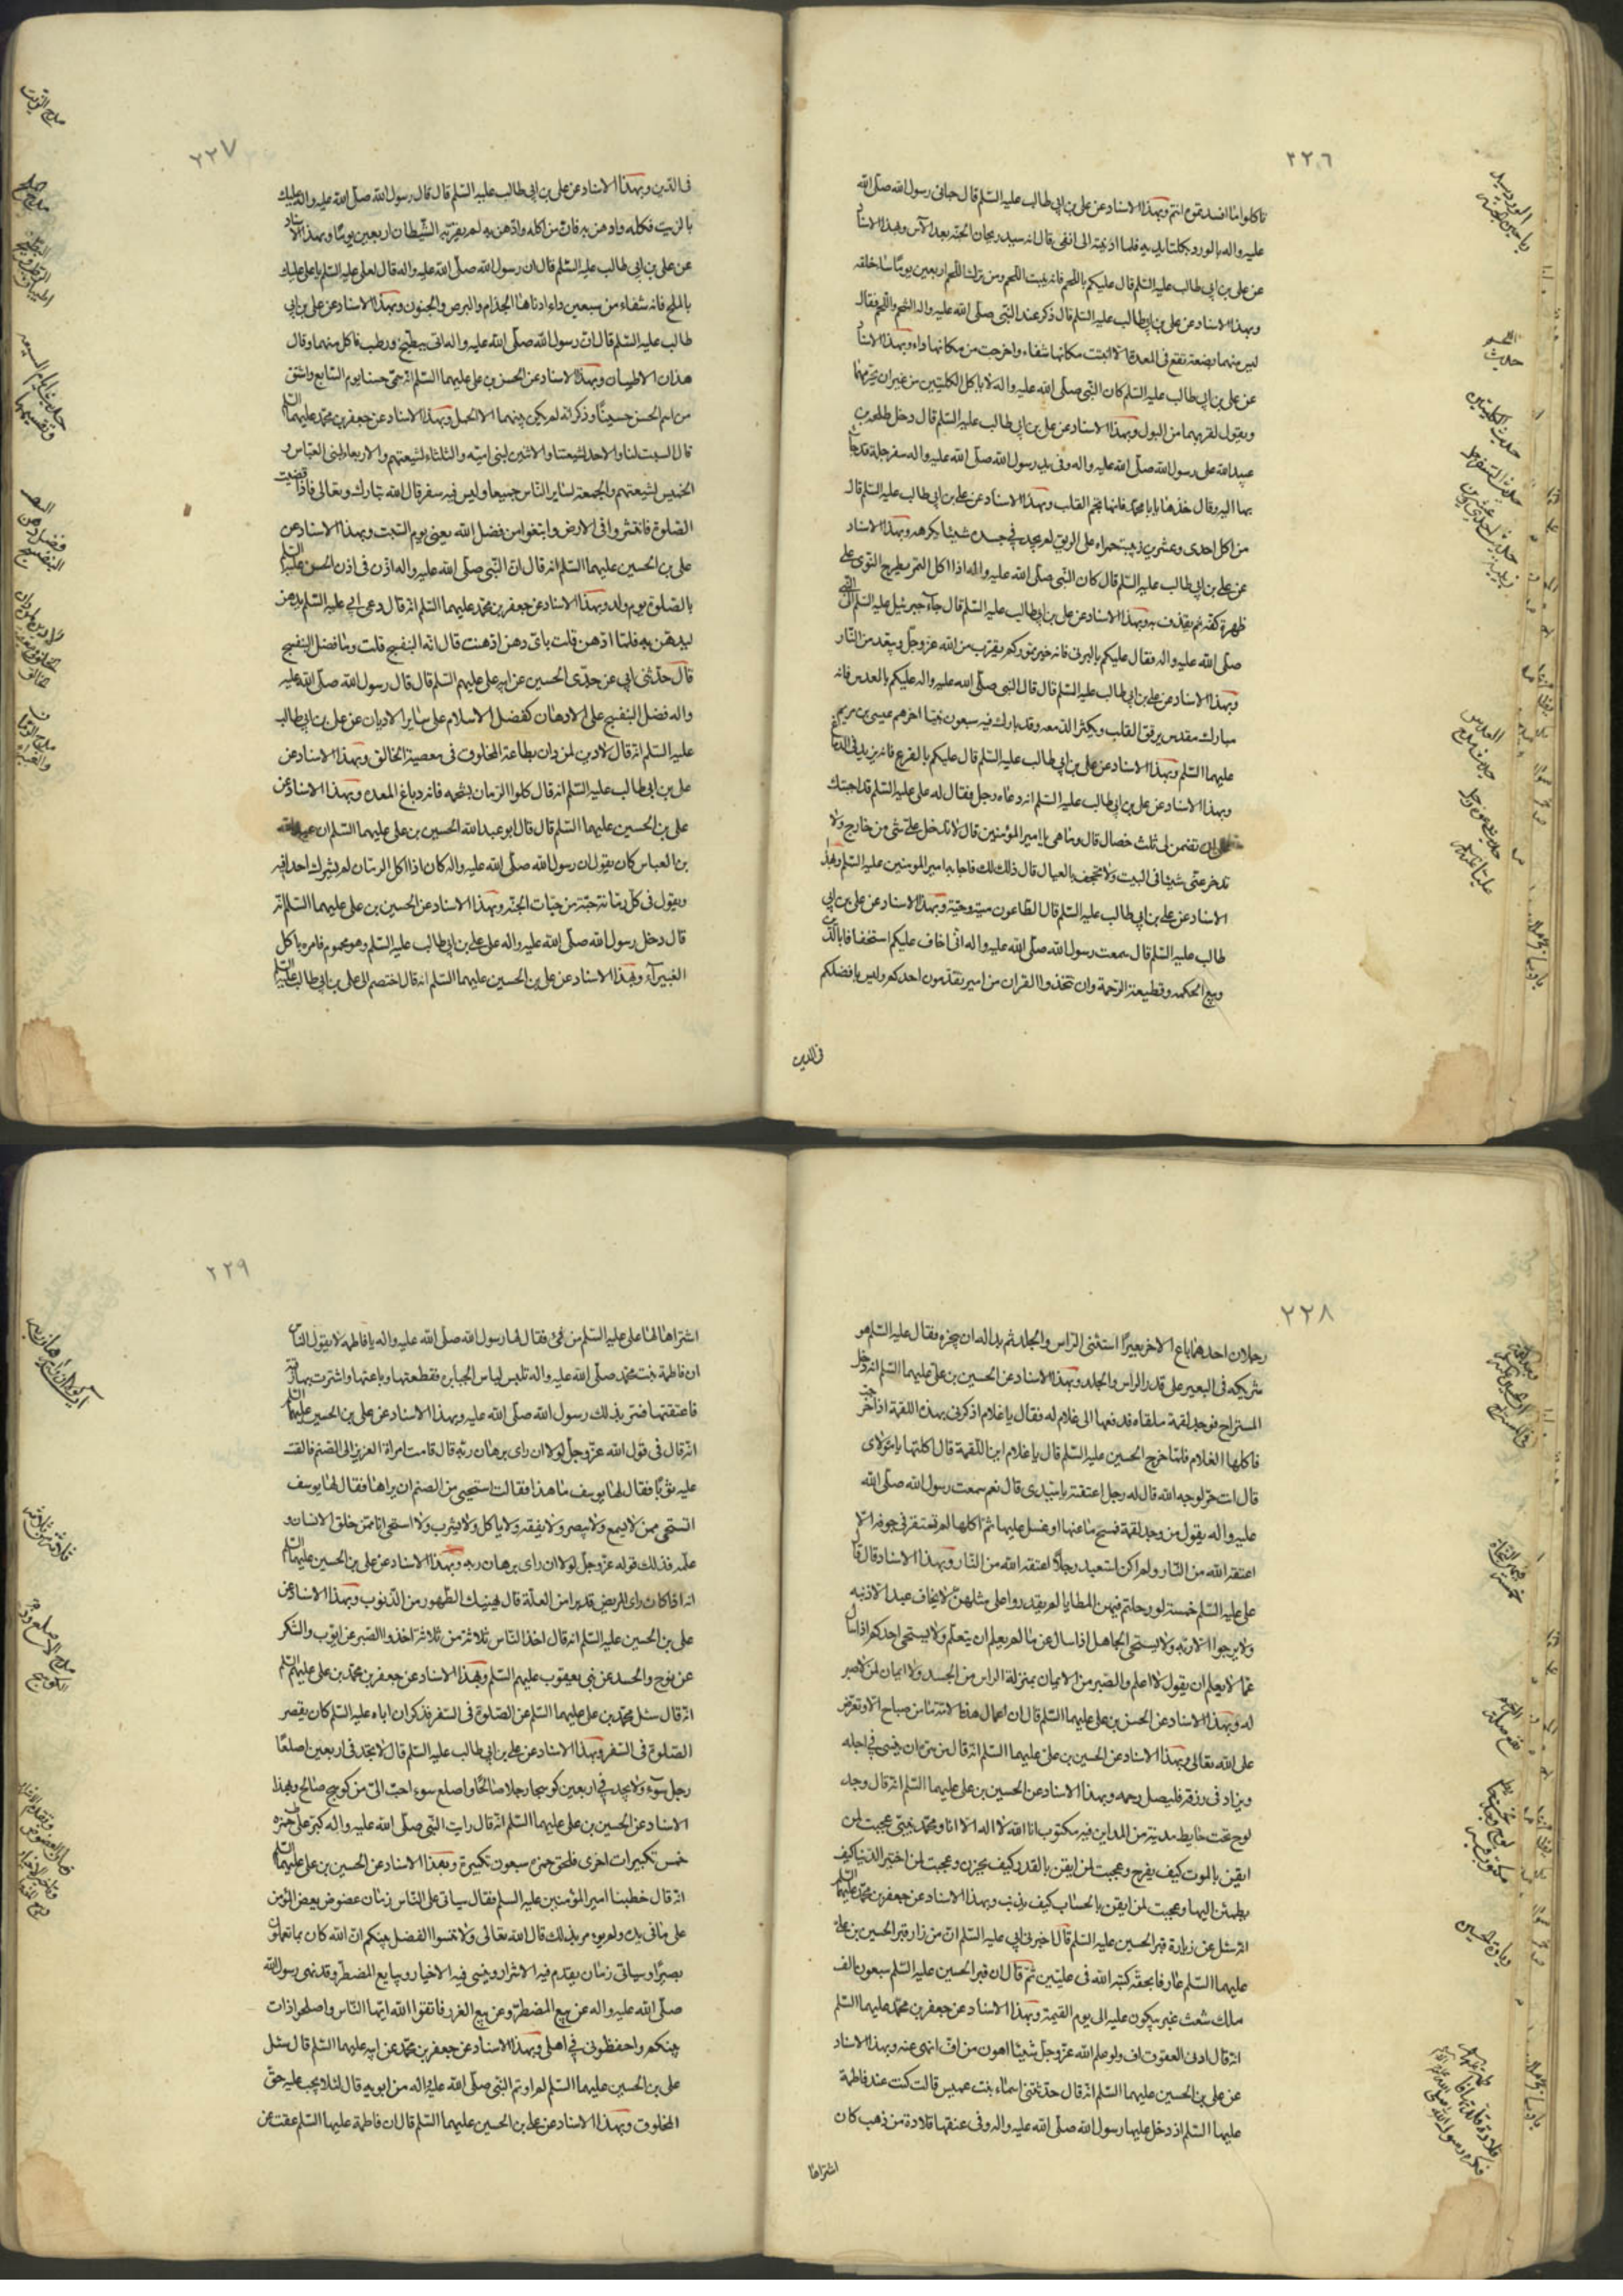 ٢٢٦
تاكلوا ما افسدتموه انتم وبهذا الاسناد عن علي بن ابي طالب عليه السلم قال حباني رسول الله صلى الله
عليه واله بالورد بكلتا يديه فلما ادنيته الى انفى قال انه سيد ريحان الجنة بعد الآس وبهذا الاسناد
عن على بن ابي طالب عليه السلم قال عليكم باللحم فانه ينبت اللحم ومن ترك اللحم اربعين يوما ساء خلقه
وبهذا الاسناد عن على بن ابي طالب عليه السلم قال ذكر عند النبى صلى الله عليه واله الشحم واللحم فقال
ليس منهما بضعة تقع فى المعدة الا انبتت مكانها شفاء واخرجت من مكانها داء وبهذا الاسناد
عن على بن ابي طالب عليه السلم كان النبى صلى الله عليه واله لا ياكل الكليتين من غير ان يحرمهما
ويقول لقربهما من البول وبهذا الاسناد عن على بن ابي طالب عليه السلم قال دخل طلحه بن
عبيد الله على رسول الله صلى الله عليه واله وفى يد رسول الله صلى الله عليه واله سفرجلة قد جاء
بها اليه وقال خذها يابا محمد فانها تجم القلب وبهذا الاسناد عن علي بن ابي طالب عليه السلم قال
من اكل احدى وعشرين زبيبة حمراء على الريق لم يجد فى جسده شيئا يكرهه وبهذا الاسناد
عن علي بن ابي طالب عليه السلم قال كان النبى صلى الله عليه واله اذا اكل التمر يطرح النوى على
ظهر كفه ثم يقذف به وبهذا الاسناد عن على بن ابي طالب عليه السلم قال جاء جبرئيل عليه السلم الى النبى
صلى الله عليه واله فقال عليكم بالبرنى فانه خير تموركم يقرب من الله عز وجل ويبعد من النار
وبهذا الاسناد عن علي بن ابي طالب عليه السلم قال قال النبى صلى الله عليه واله عليكم بالعدس فانه
مبارك مقدس يرقق القلب ويكثر الدمعه وقد بارك فيه سبعون نبيا اخرهم عيسى بن مريم
عليهما السلم وبهذا الاسناد عن على بن ابي طالب عليه السلم قال عليكم بالقرع فانه يزيد فى الدماغ
وبهذا الاسناد عن على بن ابي طالب عليه السلم انه دعاه رجل فقال له على عليه السلم قد اجبتك
على ان تضمن لى ثلث خصال قال وما هى يا امير المؤمنين قال لا تدخل على شئ من خارج ولا
تدخر عنى شيئا فى البيت ولا تجحف بالعيال قال ذلك لك فاجابه امير المومنين عليه السلم وبهذا
الاسناد عن علي بن ابي طالب عليه السلم قال الطاعون ميتة وحيّة وبهذا الاسناد عن علي بن ابي
طالب عليه السلم قال سمعت رسول الله صلى الله عليه واله انى اخاف عليكم استخفافا بالدين
وبيع الحكمه وقطيعة الرحمة وان تتخذوا القران مزامير تقدمون احدكم وليس بافضلكم
فى الدين
حديث اللحم
حديث الكليتين
حديث السفرجل
٢٢٧
فى الدين وبهذا الاسناد عن على بن ابي طالب عليه السلم قال قال رسول الله صلى الله عليه واله عليك
بالزيت فكله وادهن به فان من اكله وادهن به لم يقربه الشيطان اربعين يوما وبهذا الاسناد
عن على بن ابي طالب عليه السلم قال ان رسول الله صلى الله عليه واله قال لعلى عليه السلم يا على عليك
بالملح فانه شفاء من سبعين داء ادناها الجذام والبرص والجنون وبهذا الاسناد عن على بن ابي
طالب عليه السلم قال ان رسول الله صلى الله عليه واله اتى ببطيخ ورطب فاكل منهما وقال
هذان الاطيبان وبهذا الاسناد عن الحسن بن على عليهما السلم انه سمى حسنا يوم السابع واشتق
من اسم الحسن حسينا وذكر انه لم يكن بينهما الا الحمل وبهذا الاسناد عن جعفر بن محمد عليهما السلم
قال السبت لنا والاحد لشيعتنا والاثنين لبنى اميه والثلثاء لشيعتهم والاربعاء لبنى العباس و
الخميس لشيعتهم والجمعة لساير الناس جميعا وليس فيه سفر قال الله تبارك وتعالى فاذا قضيت
الصلوة فانتشروا فى الارض وابتغوا من فضل الله يعنى يوم السبت وبهذا الاسناد عن
على بن الحسين عليهما السلم انه قال ان النبى صلى الله عليه واله اذن فى اذن الحسن عليه السلم
بالصلوة يوم ولد وبهذا الاسناد عن جعفر بن محمد عليهما السلم انه قال دعى ابى عليه السلم بدهن
ليدهن به فلما ادهن قلت باى دهن ادهنت قال انه البنفسج قلت وما فضل البنفسج
قال حدثنى ابى عن جدى الحسين عن ابيه على عليهم السلم قال قال رسول الله صلى الله عليه
واله فضل البنفسج على الادهان كفضل الاسلام على سائر الاديان عن على بن ابي طالب
عليه السلم انه قال لا دين لمن دان بطاعة المخلوق فى معصية الخالق وبهذا الاسناد عن
على بن ابي طالب عليه السلم انه قال كلوا الرمان بشحمه فانه دباغ المعده وبهذا الاسناد عن
على بن الحسين عليهما السلم قال قال ابو عبد الله الحسين بن على عليهما السلم ان عبد الله
بن العباس كان يقول ان رسول الله صلى الله عليه واله كان اذا اكل الرمان لم يشرك احدا فيه
ويقول فى كل رمانة حبة من حبات الجنة وبهذا الاسناد عن الحسين بن على عليهما السلم انه
قال دخل رسول الله صلى الله عليه واله على علي بن ابي طالب عليه السلم وهو محموم فامره باكل
الغبيراء وبهذا الاسناد عن على بن الحسين عليهما السلم انه قال اختصم الى على بن ابي طالب عليه السلم
مدح الزيت
مدح الملح
فضل دهن البنفسج
٢٢٨
رجلان احدهما باع الاخر بعيرا استثنى الراس والجلد ثم بدا له ان ينحره فقال عليه السلم هو
شريكه فى البعير على قدر الراس والجلد وبهذا الاسناد عن الحسين بن على عليهما السلم انه دخل
المستراح فوجد لقمة ملقاة فدفعها الى غلام له فقال يا غلام اذكرنى بهذه اللقمة اذا خرجت
فاكلها الغلام فلما خرج الحسين عليه السلم قال يا غلام اين اللقمة قال اكلتها يا مولاى
قال انت حر لوجه الله قال له رجل اعتقته يا سيدى قال نعم سمعت رسول الله صلى الله
عليه واله يقول من وجد لقمة فمسح ما عنها او غسل عليها ثم اكلها لم تستقر فى جوفه الا
اعتقه الله من النار ولم اكن استعبد رجلا اعتقه الله من النار وبهذا الاسناد قال قال
على عليه السلم خمسة لو رحلتم فيهن المطايا لم يقدروا على مثلهن لا يخاف عبد الا ذنبه
ولا يرجوا الا ربه ولا يستحى الجاهل اذا سال عن ما لم يعلم ان يتعلم ولا يستحى احدكم اذا سال
عما لا يعلم ان يقول لا اعلم والصبر من الايمان بمنزلة الراس من الجسد ولا ايمان لمن لا صبر
له وبهذا الاسناد عن الحسين بن على عليهما السلم قال ان اعمال هذه الامة ما من صباح الا وتعرض
على الله تعالى وبهذا الاسناد عن الحسين بن على عليهما السلم انه قال من سره ان ينسى فى اجله
ويزاد فى رزقه فليصل رحمه وبهذا الاسناد عن الحسين بن على عليهما السلم انه قال وجد
لوح تحت حايط مدينة من المداين فيه مكتوب انا الله لا اله الا انا ومحمد نبيى عجبت لمن
ايقن بالموت كيف يفرح وعجبت لمن ايقن بالقدر كيف يحزن وعجبت لمن اختبر الدنيا كيف
يطمئن اليها وعجبت لمن ايقن بالحساب كيف يذنب وبهذا الاسناد عن جعفر بن محمد عليهما السلم
انه سئل عن زيارة قبر الحسين عليه السلم قال اخبرنى ابى عليه السلم ان من زار قبر الحسين بن على
عليهما السلم عارفا بحقه كتبه الله فى عليين ثم قال ان قبر الحسين عليه السلم سبعون الف
ملك شعث غبر يبكون عليه الى يوم القيمة وبهذا الاسناد عن جعفر بن محمد عليهما السلم
انه قال ادنى العقوق اف ولو علم الله عز وجل شيئا اهون من اف لنهى عنه وبهذا الاسناد
عن على بن الحسين عليهما السلم انه قال حدثتنى اسماء بنت عميس قالت كنت عند فاطمة
عليها السلم اذ دخل عليها رسول الله صلى الله عليه واله وفى عنقها قلادة من ذهب كان
اشتراها
٢٢٩
اشتراها لها على عليه السلم من فئ فقال لها رسول الله صلى الله عليه واله يا فاطمه لا يقول الناس
ان فاطمة بنت محمد صلى الله عليه واله تلبس لباس الجبابره فقطعتها وباعتها واشترت بها رقبة
فاعتقتها فسر بذلك رسول الله صلى الله عليه وبهذا الاسناد عن على بن الحسين عليهما السلم
انه قال فى قول الله عز وجل لولا ان راى برهان ربه قال قامت امراة العزيز الى الصنم فالقت
عليه ثوبا فقال لها يوسف ما هذا فقالت استحيى من الصنم ان يراها فقال لها يوسف
اتستحى ممن لا يسمع ولا يبصر ولا يفقه ولا ياكل ولا يشرب ولا استحى انا ممن خلق الانسان و
علمه فذلك قوله عز وجل لولا ان راى برهان ربه وبهذا الاسناد عن على بن الحسين عليهما السلم
انه اذا كان راى المريض قد برا من العلة قال ليهنيك الطهور من الذنوب وبهذا الاسناد عن
على بن الحسين عليه السلم انه قال اخذ الناس ثلاثة من ثلاثة اخذوا الصبر عن ايوب والشكر
عن نوح والحسد عن بنى يعقوب عليهم السلم وبهذا الاسناد عن جعفر بن محمد بن على عليهم السلم
انه قال سئل محمد بن على عليهما السلم عن الصلوة فى السفر فذكر ان اباه عليه السلم كان يقصر
الصلوة فى السفر وبهذا الاسناد عن على بن ابي طالب عليه السلم قال لا تجد فى اربعين اصلعا
رجل سوء ولا تجد فى اربعين كوسجا رجلا صالحا واصلع سوء احب الى من كوسج صالح وبهذا
الاسناد عن الحسين بن على عليهما السلم انه قال رايت النبى صلى الله عليه واله كبر على حمزه
خمس تكبيرات اخرى فلحق حمزه سبعون تكبيرة وبهذا الاسناد عن الحسين بن على عليهما السلم
انه قال خطبنا امير المؤمنين عليه السلم فقال سياتى على الناس زمان عضوض يعض المؤمن
على ما فى يده ولم يومر بذلك قال الله تعالى ولا تنسوا الفضل بينكم ان الله كان بما تعملون
بصيرا وسياتى زمان يقدم فيه الاشرار وينسى فيه الاخيار ويبايع المضطر وقد نهى رسول الله
صلى الله عليه واله عن بيع المضطر وعن بيع الغرر فاتقوا الله ايها الناس واصلحوا ذات
بينكم واحفظونى فى اهلى وبهذا الاسناد عن جعفر بن محمد عن ابيه عليهما السلم قال سئل
على بن الحسين عليهما السلم لم اوتم النبى صلى الله عليه واله من ابويه قال لئلا يجب عليه حق
المخلوق وبهذا الاسناد عن علي بن الحسين عليهما السلم قال ان فاطمة عليها السلم عقت عن